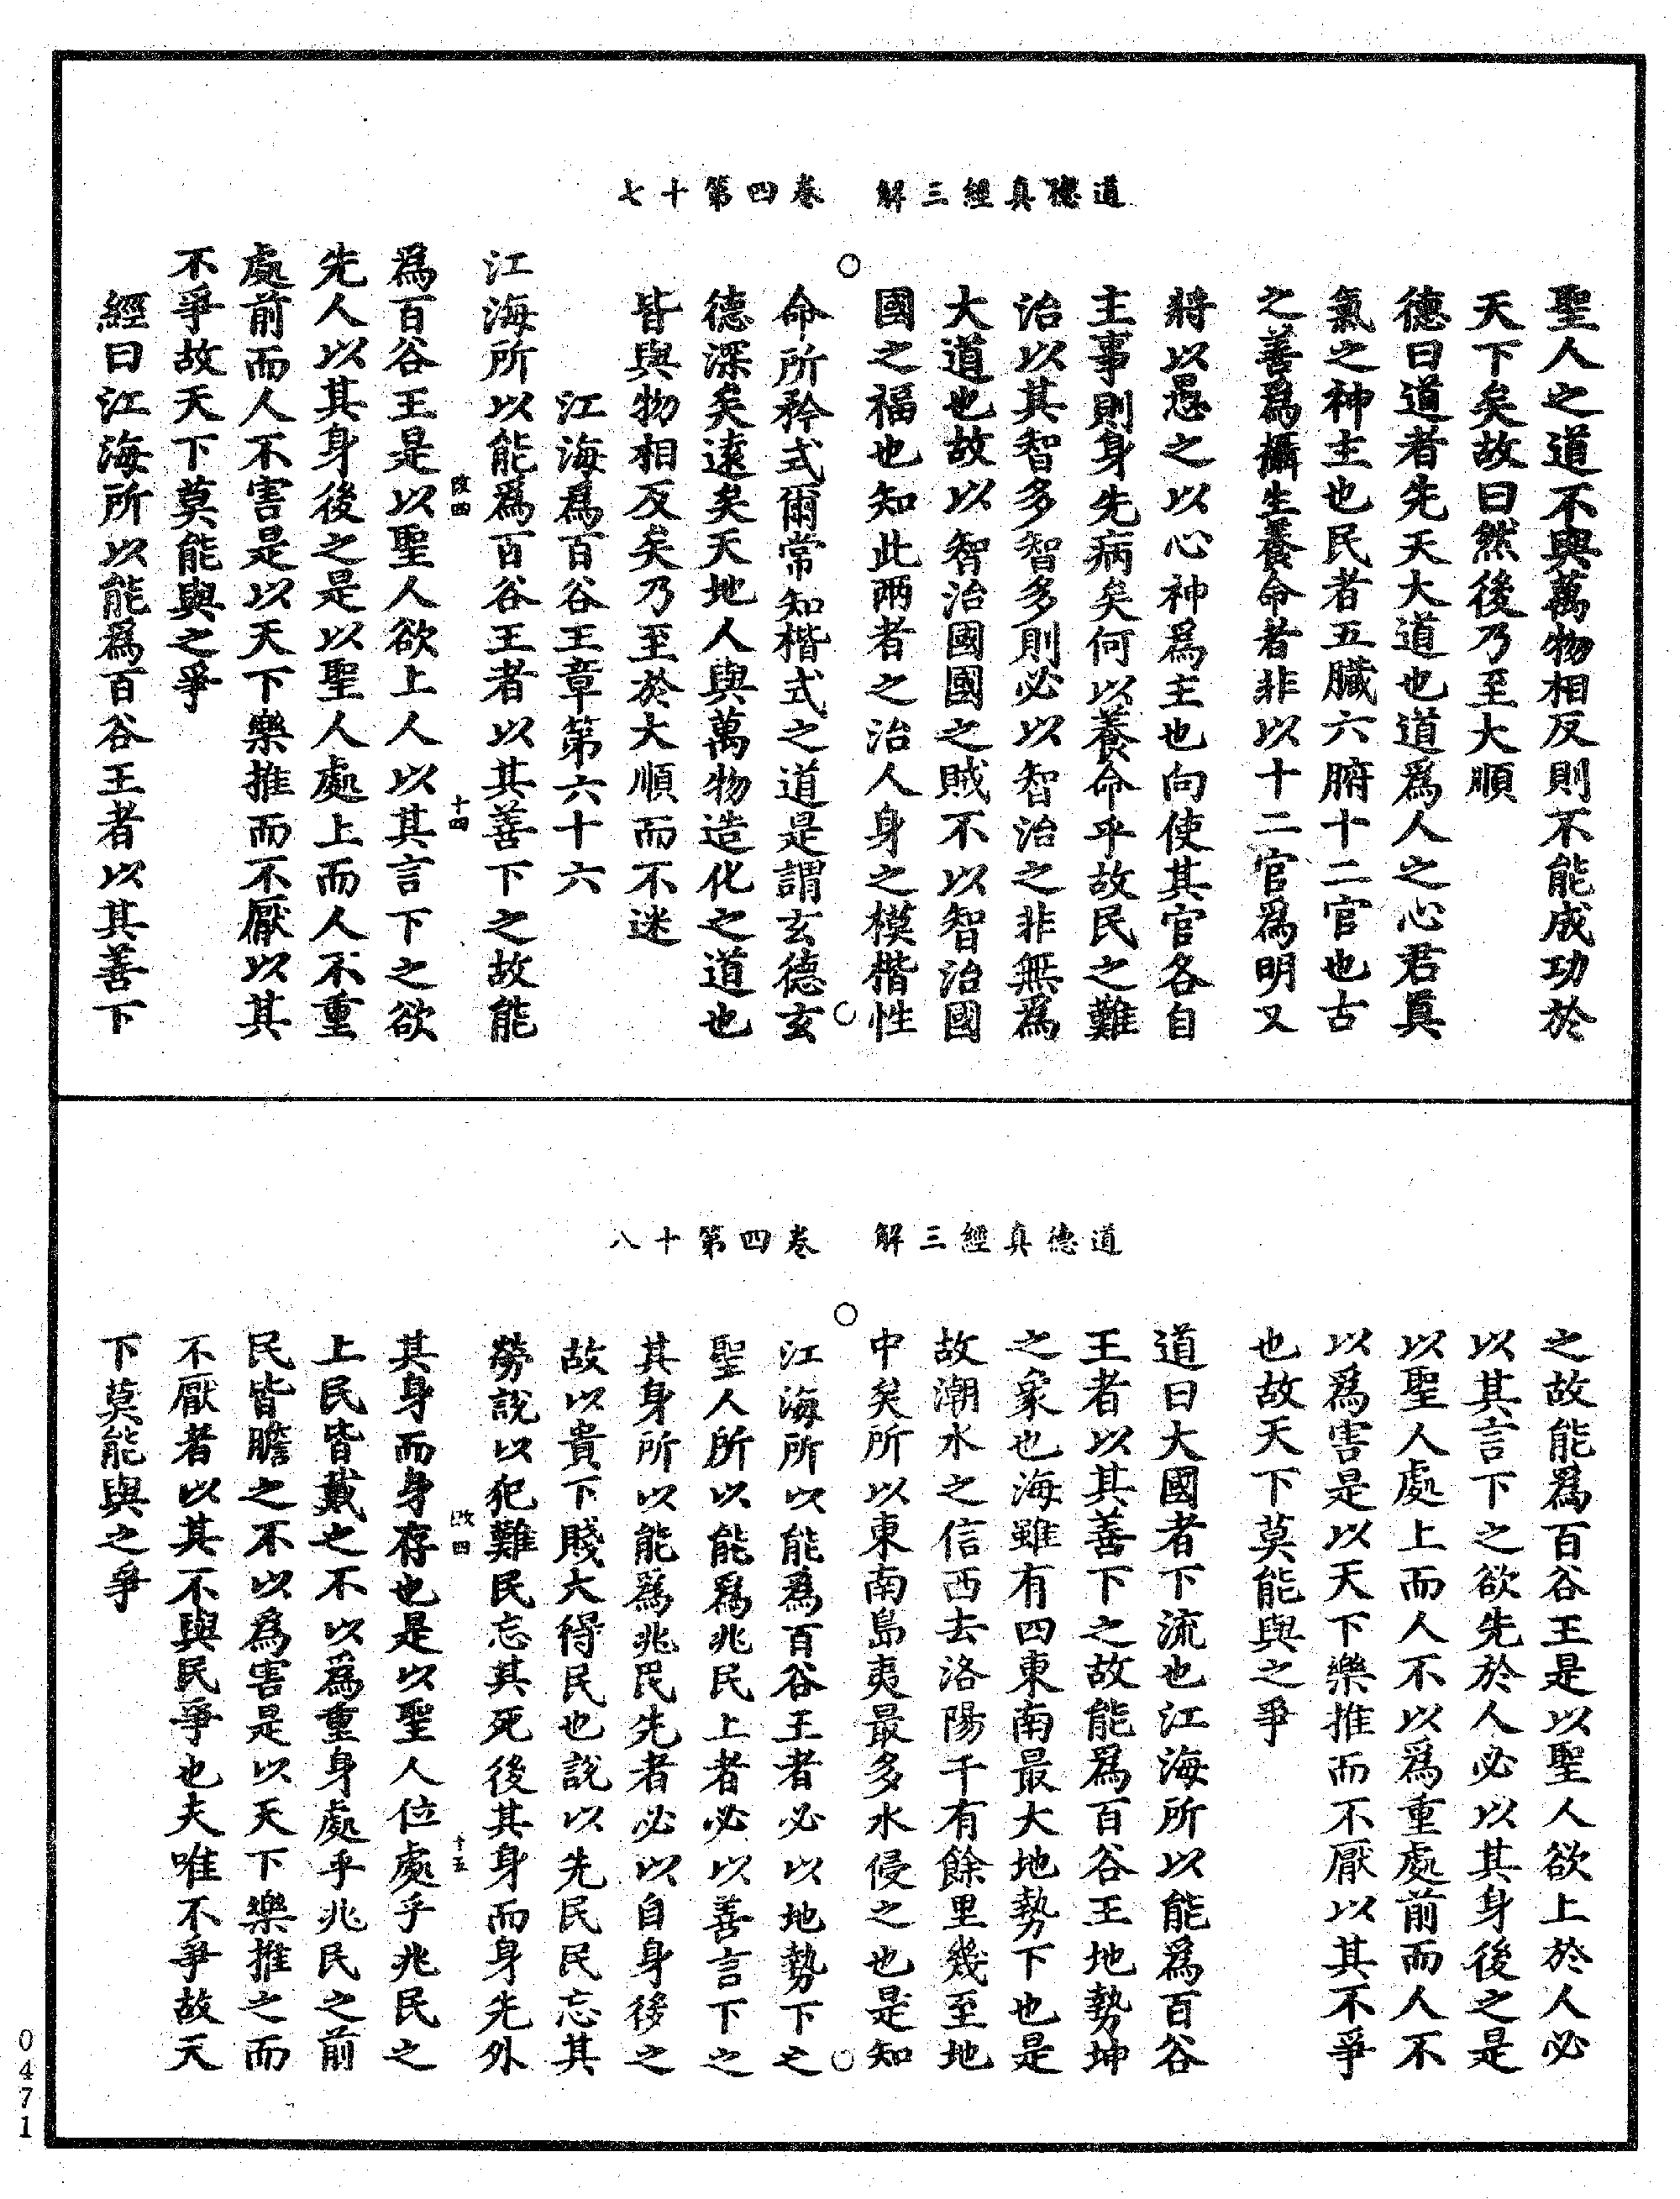 道德真經三解　卷四第十七
聖人之道不與萬物相反則不能成功於
天下矣故曰然後乃至大順
德曰道者先天大道也道爲人之心君真
氣之神主也民者五臟六腑十二官也古
之善爲攝生養命者非以十二官爲明又
將以愚之以心神爲主也向使其官各自
主事則身先病矣何以養命乎故民之難
治以其智多智多則必以智治之非無爲
大道也故以智治國國之賊不以智治國
國之福也知此兩者之治人身之模楷性
命所矜式爾常知楷式之道是謂玄德玄
德深矣遠矣天地人與萬物造化之道也
皆與物相反矣乃至於大順而不迷
江海爲百谷王章第六十六
江海所以能爲百谷王者以其善下之故能
改四　十四
爲百谷王是以聖人欲上人以其言下之欲
先人以其身後之是以聖人處上而人不重
處前而人不害是以天下樂推而不厭以其
不爭故天下莫能與之爭
經曰江海所以能爲百谷王者以其善下
道德真經三解　卷四第十八
之故能爲百谷王是以聖人欲上於人必
以其言下之欲先於人必以其身後之是
以聖人處上而人不以爲重處前而人不
以爲害是以天下樂推而不厭以其不爭
也故天下莫能與之爭
道曰大國者下流也江海所以能爲百谷
王者以其善下之故能爲百谷王地勢坤
之象也海雖有四東南最大地勢下也是
故潮水之信西去洛陽千有餘里幾至地
中矣所以東南島夷最多水侵之也是知
江海所以能爲百谷王者必以地勢下之
聖人所以能爲兆民上者必以善言下之
其身所以能爲兆民先者必以自身後之
故以貴下賤大得民也說以先民民忘其
勞說以犯難民忘其死後其身而身先外
改四　十五
其身而身存也是以聖人位處乎兆民之
上民皆戴之不以爲重身處乎兆民之前
民皆瞻之不以爲害是以天下樂推之而
不厭者以其不與民爭也夫唯不爭故天
下莫能與之爭
0471